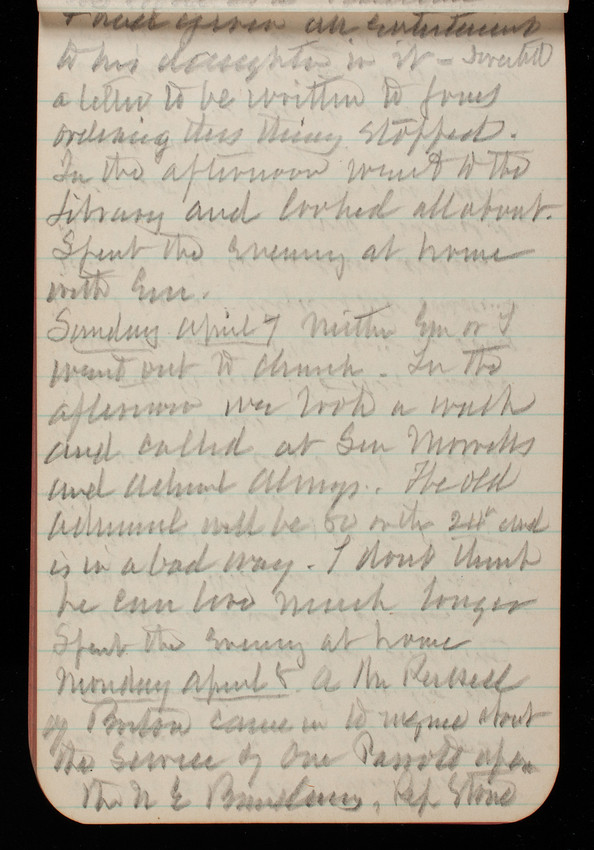 to his daughter in it - directed
a letter to be written to Jones
ordering this thing stopped.
In the afternoon went to the
Library and looked all about.
Spent the evening at home
with Em.
Sunday April 7 Neither Em or I
went out to church. In the
afternoon we took a walk
and called at Gen
and Admiral. The old
Admiral will be 80 on the 24" and
is in a bad way. I dont think
he can live much longer
Spent the evening at home
Monday April 8 A Mr
of Boston came in to inquire about
the service of one upon
the N E, Rep Stone